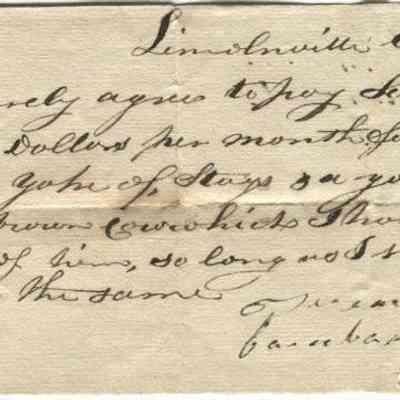 Limolnville
rely agree to pay Se
Dollars per month fo
Yoke of Stags & a yo
brown Cow which I ha
of him, so long as I
the same